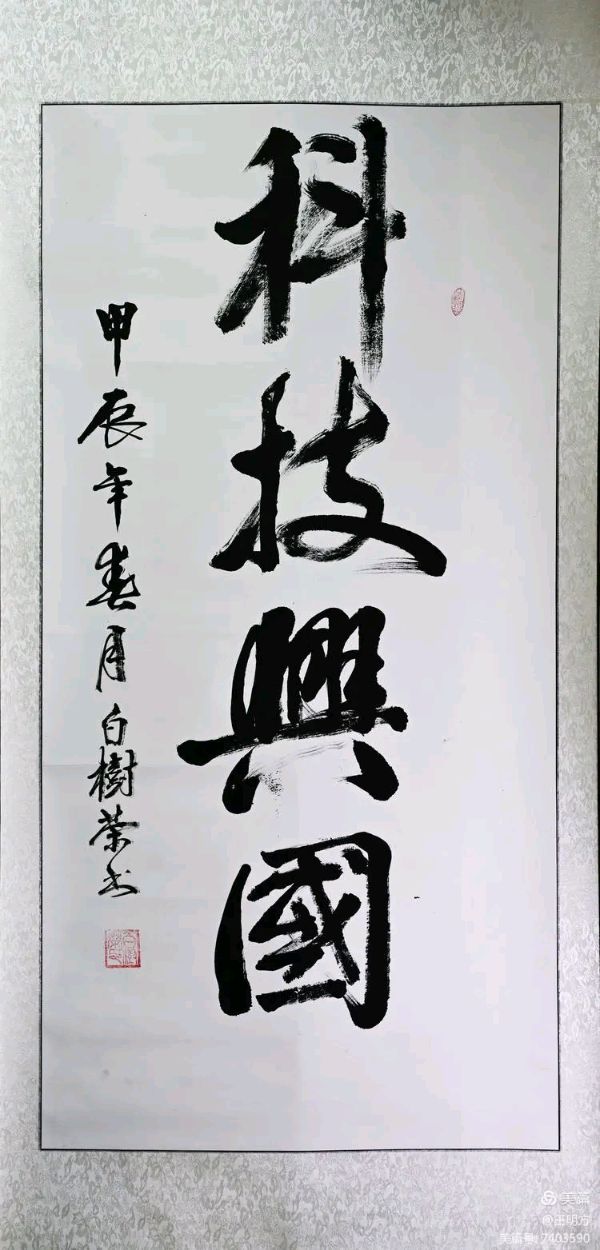 科技興國
甲辰年春月白樹荣书
美篇
@王明方
美篇号: 7403590